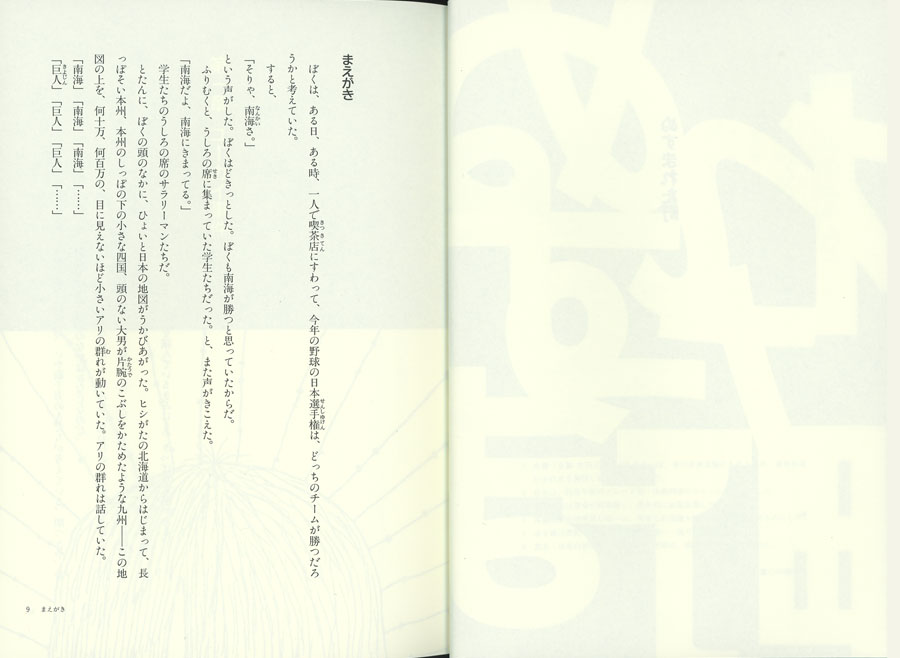 まえがき
ぼくは、ある日、ある時、一人で喫茶店にすわって、今年の野球の日本選手権は、どっちのチームが勝つだろ
うかと考えていた。
すると、
「そりゃ、南海さ。」
という声がした。ぼくはどきっとした。ぼくも南海が勝つと思っていたからだ。
ふりむくと、うしろの席に集まっていた学生たちだった。と、また声がきこえた。
「南海だよ、南海にきまってる。」
学生たちのうしろの席のサラリーマンたちだ。
とたんに、ぼくの頭のなかに、ひょいと日本の地図がうかびあがった。ヒシがたの北海道からはじまって、長
っぽそい本州、本州のしっぽの下の小さな四国、頭のない大男が片腕のこぶしをかためたような九州――この地
図の上を、何十万、何百万の、目に見えないほど小さいアリの群れが動いていた。アリの群れは話していた。
「南海」「南海」「南海」「……」
「巨人」「巨人」「巨人」「……」
9 まえがき